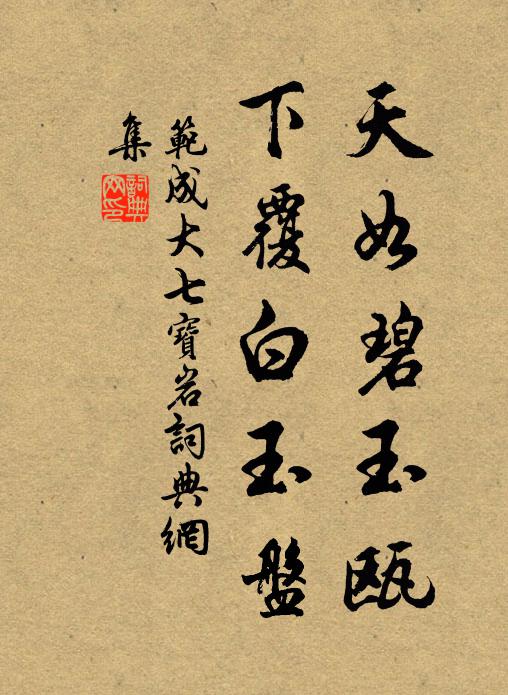 天如碧玉瓯
下覆白玉盤
範成大七寶岩詞典網
集
詞典
网印